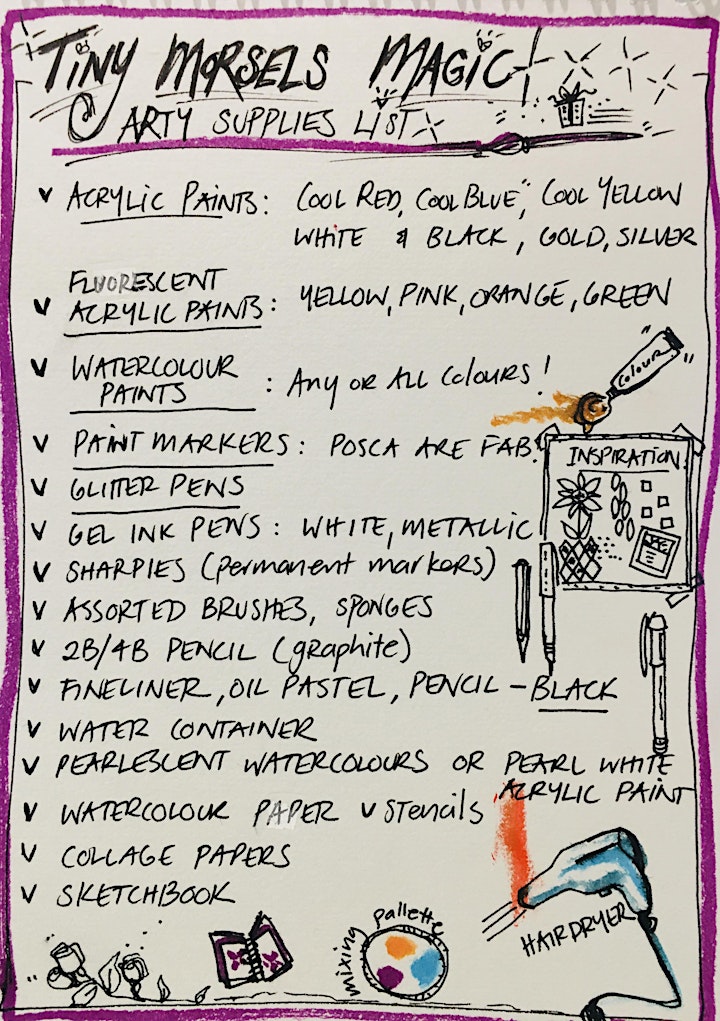 TINY MORSELS MAGIC!
ARTY SUPPLIES LIST
v ACRYLIC PAINTS: COOL RED, COOL BLUE, COOL YELLOW
WHITE & BLACK, GOLD, SILVER
FLUORESCENT
v ACRYLIC PAINTS: YELLOW, PINK, ORANGE, GREEN
v WATERCOLOUR
PAINTS : ANY OR ALL COLOURS!
COLOUR
v PAINT MARKERS: POSCA ARE FAB!
INSPIRATION
v GLITTER PENS
v GEL INK PENS: WHITE, METALLIC
v SHARPIES (permanent markers)
v ASSORTED BRUSHES, SPONGES
v 2B/4B PENCIL (graphite)
v FINELINER, OIL PASTEL, PENCIL - BLACK
v WATER CONTAINER
v PEARLESCENT WATERCOLOURS OR PEARL WHITE
ACRYLIC PAINT
v WATERCOLOUR PAPER v Stencils
v COLLAGE PAPERS
v SKETCHBOOK
mixing pallette
HAIRDRYER